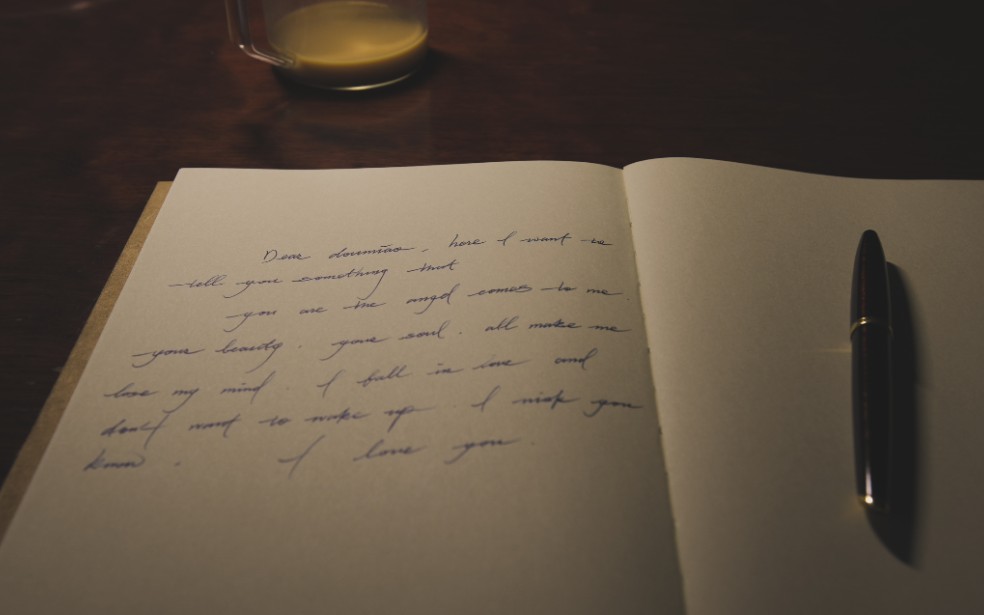 Dear doumiao, here I want to
tell you something that
you are the angel comes to me.
your beauty. your soul. all make me
lose my mind. I fall in love and
don't want to wake up. I wish you
know. I love you.